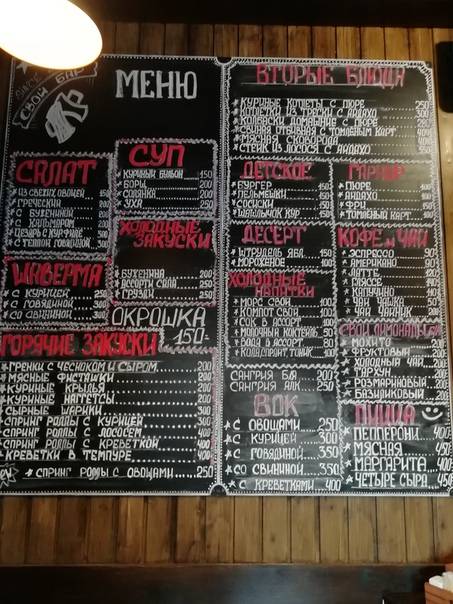 СВОЙ БАР
МЕНЮ
САЛАТ
ИЗ СВЕЖИХ ОВОЩЕЙ 150
ГРЕЧЕСКИЙ 200
С БУЖЕНИНОЙ
С КАЛЬМАРОМ
ЦЕЗАРЬ С КУРИЦЕЙ
С ТЕПЛОЙ ГОВЯДИНОЙ 300
СУП
КУРИНЫЙ БУЛЬОН 150
БОРЩ 200
СОЛЯНКА
УХА 250
ХОЛОДНЫЕ
ЗАКУСКИ
БУЖЕНИНА 200
АССОРТИ САЛА 250
ГРУЗДИ 250
ШАВЕРМА
С КУРИЦЕЙ
С ГОВЯДИНОЙ
СО СВИНИНОЙ 300
ОКРОШКА
150-
ГОРЯЧИЕ ЗАКУСКИ
ГРЕНКИ С ЧЕСНОКОМ И СЫРОМ 200
МЯСНЫЕ ФИСТАШКИ 200
КУРИНЫЕ КРЫЛЬЯ 200
КУРИНЫЕ НАГГЕТСЫ 200
СЫРНЫЕ ШАРИКИ 300
СПРИНГ РОЛЛЫ С КУРИЦЕЙ 300
СПРИНГ РОЛЛЫ С ЛОСОСЕМ
СПРИНГ РОЛЛЫ С КРЕВЕТКОЙ 400
КРЕВЕТКИ В ТЕМПУРЕ 400
СПРИНГ РОЛЛЫ С ОВОЩАМИ 250
ВТОРЫЕ БЛЮДА
КУРИНЫЕ КОТЛЕТЫ С ПЮРЕ 250
КОТЛЕТКИ ИЗ ТРЕСКИ С АЙДАХО
КОЛБАСКИ ДОМАШНИЕ С ПЮРЕ
СВИН. ОТБИВНАЯ С ТОМЛЕНЫМ КАРТ.
МЯСНАЯ СКОВОРОДА
СТЕЙК ИЗ ЛОСОСЯ С АЙДАХО
ДЕТСКОЕ
БУРГЕР 150
ПЕЛЬМЕШКИ 150
СОСИСКИ 150
ШАШЛЫЧОК КУР 150
ГАРНИР
ПЮРЕ 100
АЙДАХО 100
ФРИ 100
ТОМЛЕНЫЙ КАРТ. 100
ДЕСЕРТ
ШТРУДЕЛЬ ЯБЛ. 150
МОРОЖЕНОЕ 100
ХОЛОДНЫЕ
НАПИТКИ
МОРС СВОЙ 100
КОМПОТ СВОЙ 100
СОК В АССОРТ 80
МОЛОЧНЫЙ КОКТЕЙЛЬ 50
ВОДА В АССОРТ 80
КОЛА, СПРАЙТ, ТОНИК 100
САНГРИЯ Б/А 200
САНГРИЯ АЛК 250
КОФЕ И ЧАЙ
ЭСПРЕССО 90
АМЕРИКАНО
ЛАТТЕ 120
ГЛЯССЕ
КАПУЧИНО
ЧАЙ ЧАШКА 50
ЧАЙ ЧАЙНИК
СВОИ ЛИМОНАДЫ
МОХИТО
ФРУКТОВЫЙ
ХОЛОДНЫЙ ЧАЙ
ТАРХУН
РОЗМАРИНОВЫЙ 200
БАЗИЛИКОВЫЙ
ВОК
С ОВОЩАМИ 250
С КУРИЦЕЙ 300
С ГОВЯДИНОЙ 350
СО СВИНИНОЙ 350
С КРЕВЕТКАМИ 400
ПИЦЦА
ПЕППЕРОНИ 400
МЯСНАЯ 450
МАРГАРИТА 400
ЧЕТЫРЕ СЫРА 450